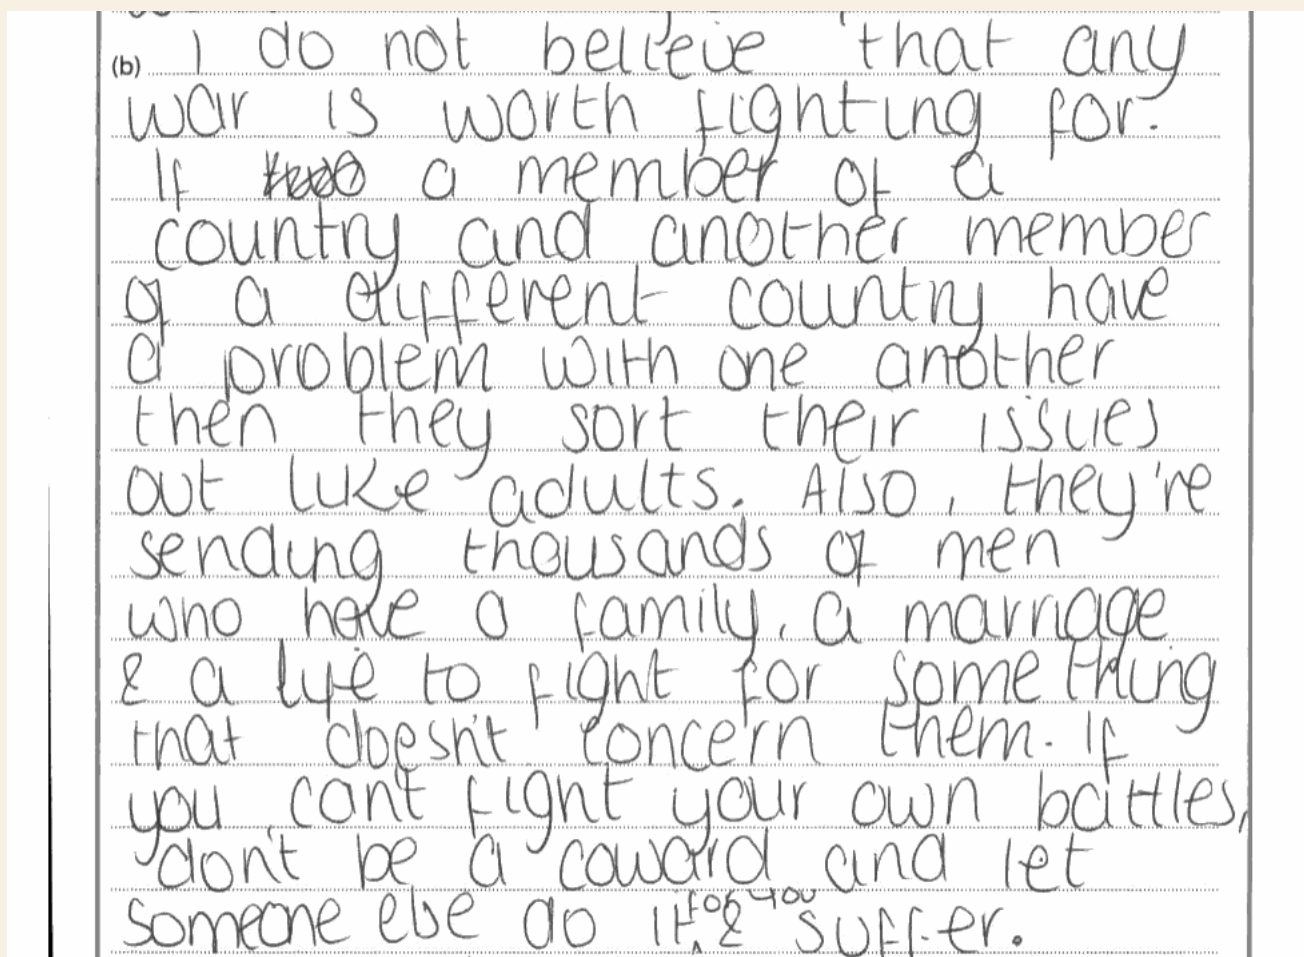 (b) I do not believe that any
war is worth fighting for.
If a member of a
country and another member
of a different country have
a problem with one another
then they sort their issues
out like adults. Also, they're
sending thousands of men
who have a family, a marriage
& a life to fight for something
that doesn't concern them. If
you can't fight your own battles,
don't be a coward and let
someone else do it for you & suffer.